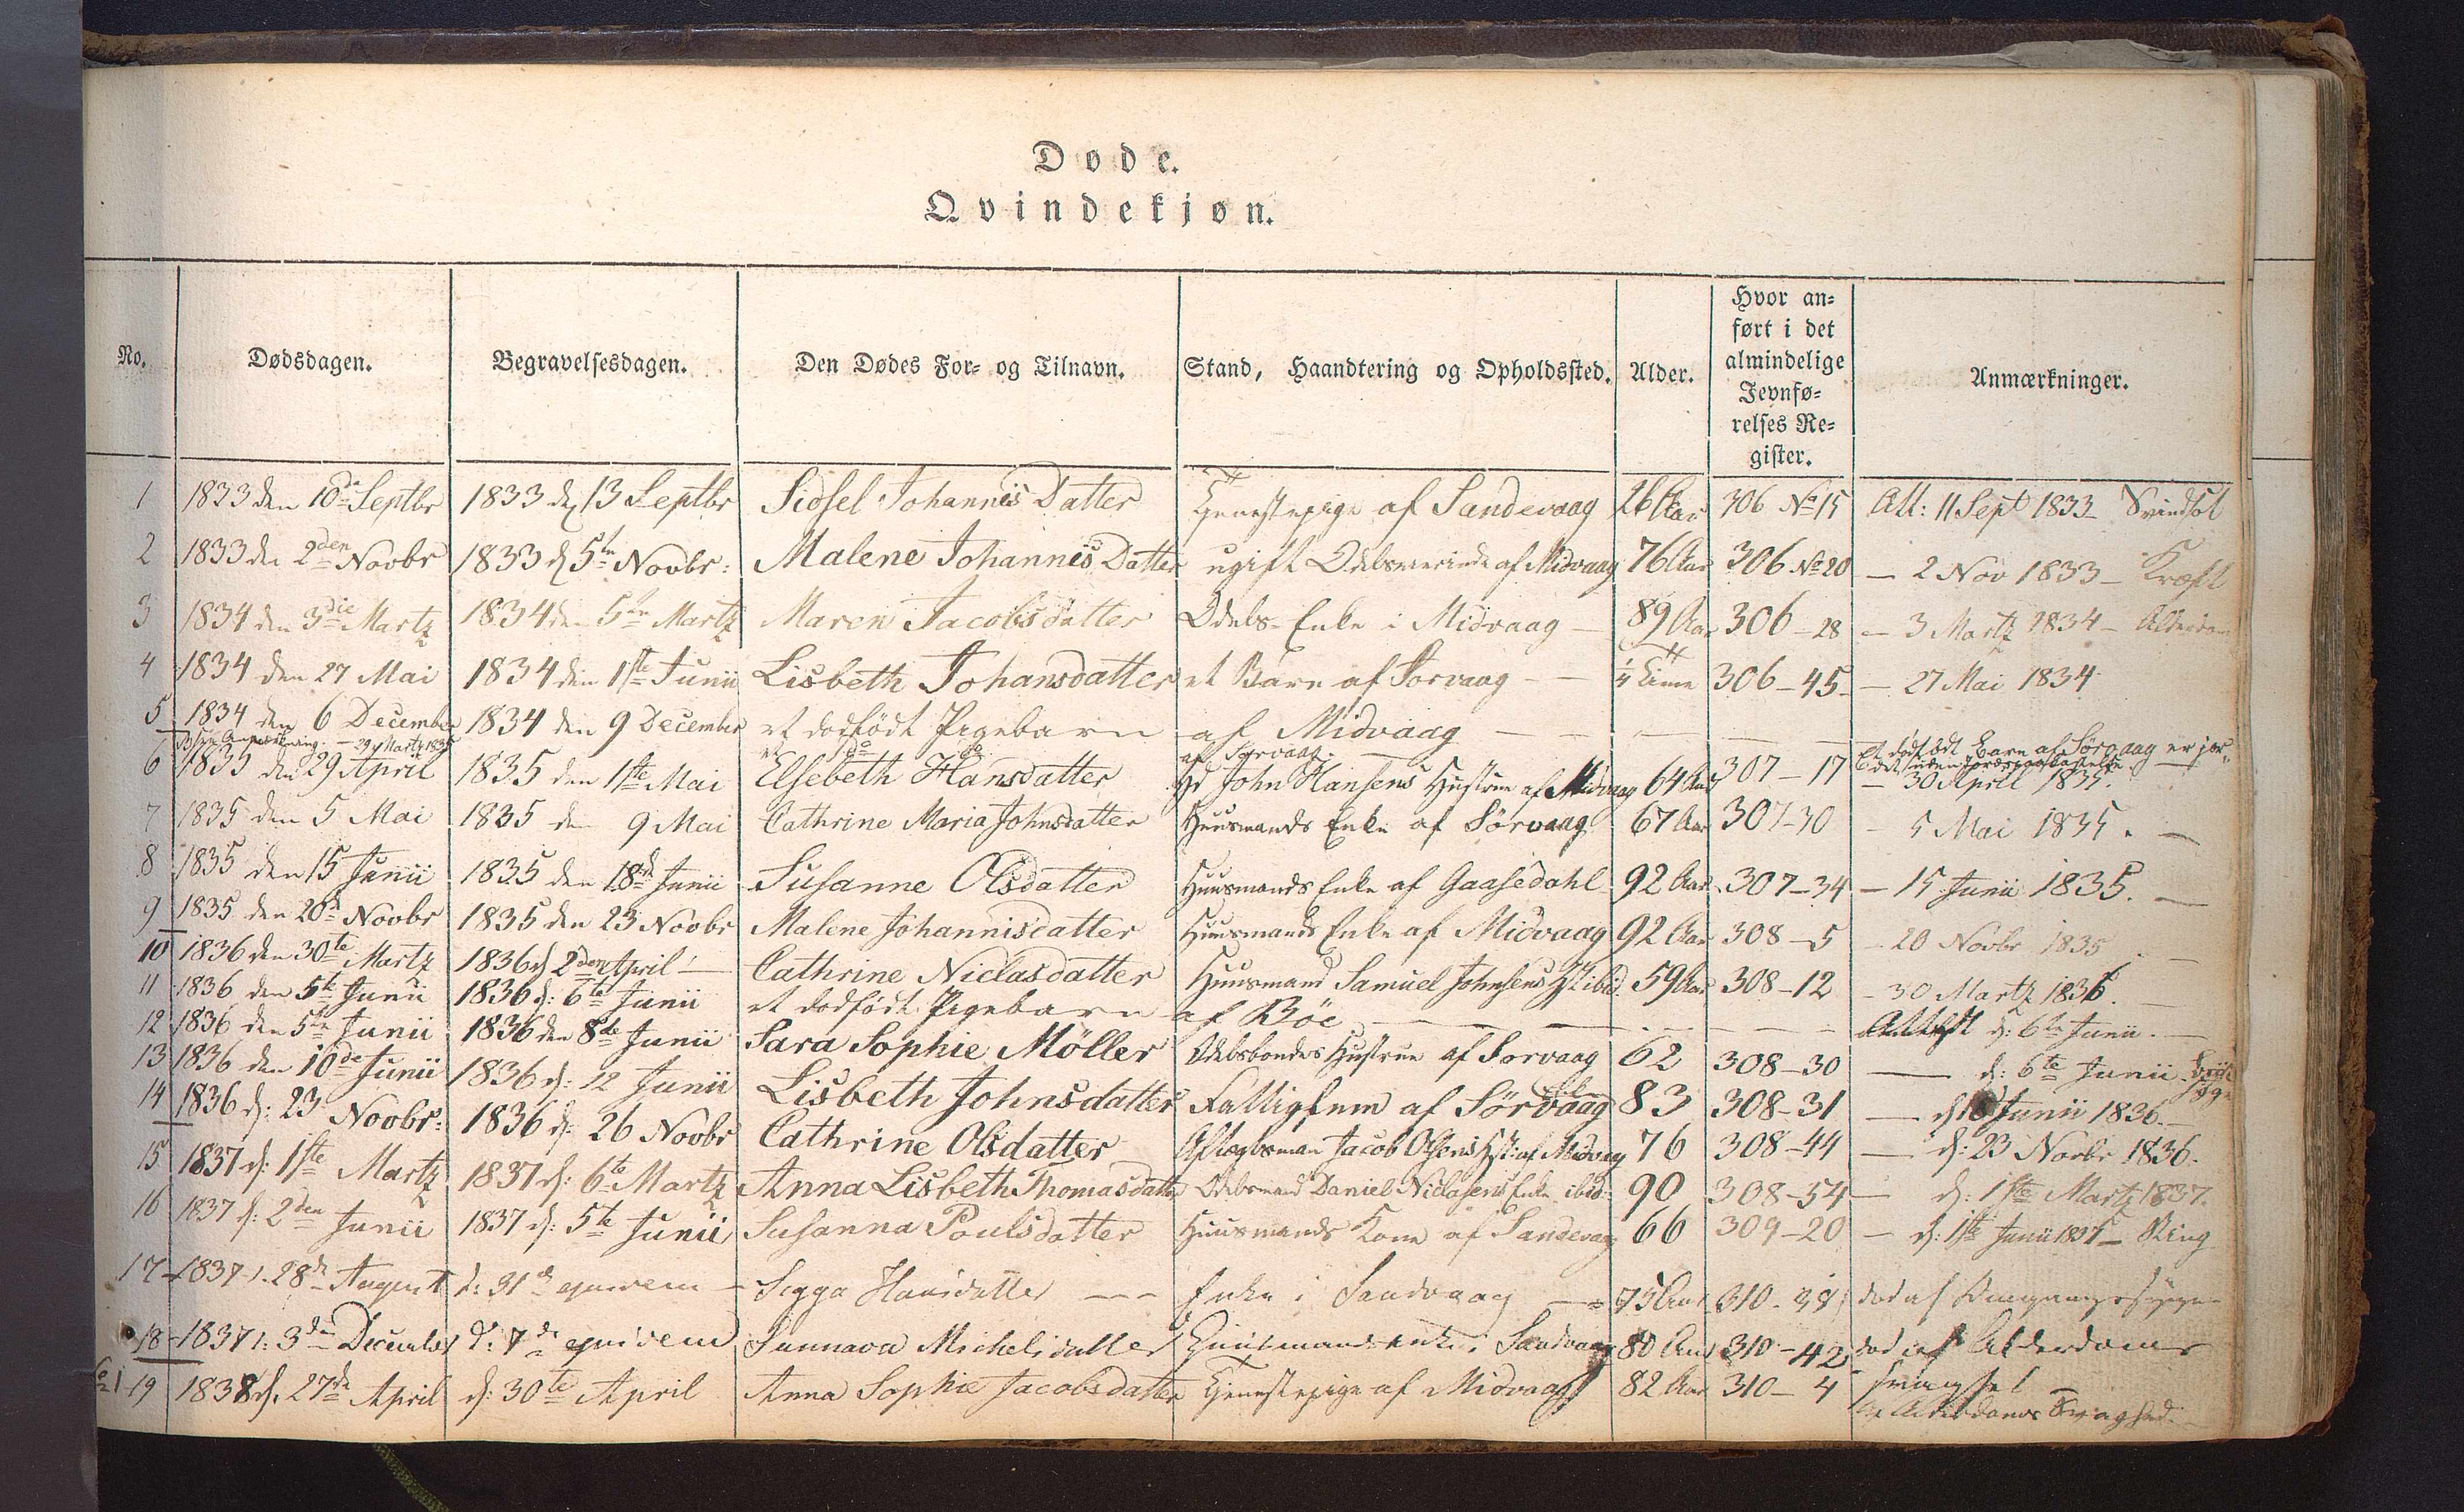 Døde.
Qvindekjøn.
No. Dødsdagen. Begravelsesdagen. Den Dødes For- og Tilnavn. Stand, Haandtering og Opholdssted. Alder. Hvor an=
ført i det
almindelige
Jevnfø=
relses Re=
gister. Anmærkninger.
1 1833 den 10de Septbr 1833 d 13 Septbr Sidsel Johannis Datter Tjenestepige af Sandevaag 26 Aar 306 No 15 Att: 11 Sept 1833 Svindsot
2 1833 den 2den Novbr 1833 d 5te Novbr: Malene Johannes Datter ugift Odelsværinde af Midvaag 76 Aar 306 No 20 — 2 Nov 1833 — Kræft
3 1834 den 3die Martz 1834 den 5te Martz Maren Jacobsdatter Odels-Enke i Midvaag — 89 Aar 306 — 28 — 3 Martz 1834 — Alderdom
4 1834 den 27 Mai 1834 den 1ste Junii Lisbeth Johansdatter et Barn af Sorvaag — — 1/4 Time 306 — 45 — 27 Mai 1834
5 1834 den 6 December 1834 den 9 December et dodfödt Pigebarn af Midvaag — — —
Anmærkning — 29 Martz 1835 et do do af Sørvaag. Et dødfødt Barn af Sörvaag er jor-
6 1835 den 29 April 1835 den 1ste Mai Elsebeth Hansdatter John Hansens Hustrue af Midvaag 64 Aar 307 — 17 — 30 April 1835.
7 1835 den 5 Mai 1835 den 9 Mai Cathrine Maria Johnsdatter Huusmands Enke af Sörvaag 67 Aar 307-30 — 5 Mai 1835. —
8 1835 den 15 Junii 1835 den 18de Junii Susanne Olsdatter Huusmands Enke af Gaasedahl 92 Aar 307-34 — 15 Junii 1835. —
9 1835 den 20de Novbr 1835 den 23 Novbr Malene Johannisdatter Huusmands Enke af Midvaag 92 Aar 308 — 5 — 20 Novbr 1835
10 1836 den 30te Martz 1836 d 2den April — Cathrine Niclasdatter Huusmand Samuel Johnsens H ibid. 59 Aar 308 — 12 — 30 Martz 1836. —
11 1836 den 5te Junii 1836 d: 6te Junii et dodfödt Pigebarn af Böe — — — Attest d: 6te Junii. —
12 1836 den 5te Junii 1836 den 8de Junii Sara Sophie Möller Odelsbondes Hustrue af Sorvaag 62 308 — 30 — d: 6te Junii
13 1836 den 10de Junii 1836 d: 12 Junii Lisbeth Johnsdatter Fattiglem af Sörvaag 83 308-31 — d 10 Junii 1836. —
14 1836 d: 23 Novbr: 1836 d: 26 Novbr Cathrine Olsdatter Aftægtsman Jacob Olsens H af Midvaag 76 308 — 44 — d: 23 Novbr 1836.
15 1837 d: 1ste Martz 1837 d: 6te Martz Anna Lisbeth Thomasdatter Odelsmand Daniel Niclasens Enke ibid: 90 308 — 54 — d: 1ste Martz 1837.
16 1837 d: 2den Junii 1837 d: 5te Junii Susanna Poulsdatter Huusmands Kone af Sandevaag 66 309 — 20 — d: 1ste Junii 1837 — Ring
17 1837 d. 28de August d: 31te ejusdem — Sigga Hansdatter — — Enke i Sandvaag — 75 Aar 310 - 38 død af
18 1837 d: 3den December d: 7de ejusdem Sunnava Michelsdatter Huusmandsenke i Sandvaag 80 Aar 310 — 42 død af Alderdoms
19 1838 d. 27de April d: 30te April Anna Sophie Jacobsdatter Tjenestepige af Midvaag 82 Aar 310 — 4 svaghed
Alderdoms Svaghed.